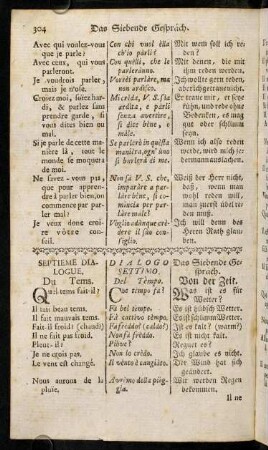 304 Das Siebende Gespräch.
Avec qui voulez-vous
que je parle?
Avec ceux, qui vous
parleront.
Je voudrois parler,
mais je n'ose.
Croiez moi, soiez har-
di, & parlez sans
prendre garde, si
vous dites bien ou
mal.
Si je parle de cette ma-
niere là, tout le
monde se moquera
de moi.
Ne savez-vous pas,
que pour appren-
dre à parler bien, on
commence par par-
ler mal?
Je veux donc suivre
vôtre conseil.
Con chi vuol ella
ch'io parli?
Con quelli, che le
parleranno.
Vorrei parlare, ma
non ardisco.
Mi creda, V. S. sia
ardita, e parli
senza avvertire,
si dir bene, o
male.
Se parlerò in questa
maniera, ogn' uno
si burlerà di me.
Non sa V. S. che,
imparare a par-
lare bene, si co-
mincia per par-
lare male?
Voglio adunque cre-
dere il suo con-
siglio.
Mit wem soll ich re-
den?
Mit denen, die mit
ihm reden werden.
Ich wollte gern reden,
aber ich getraue nicht.
Er traue mir, er seye
kühn, und rede ohne
Bedenken, es mag
gut oder schlimm
seyn.
Wenn ich also reden
werde, wird mich
jedermann
auslachen.
Weiß der Herr nicht,
daß, wenn man will
wohl reden lernen,
man vorher übel
reden muß?
Ich will dem
Herrn Rath glau-
ben.
SEPTIEME DIA-
LOGUE,
Du Tems.
Quel tems fait-il?
Il fait beau tems.
Il fait mauvais tems.
Fait-il froid? (chaud)
Il ne fait pas froid.
Pleut-il?
Je ne crois pas.
Le vent est changé.
Nous aurons de la
pluie.
DIALOGO
SETTIMO,
Del Tempo.
Che tempo fa?
Fà bel tempo.
Fà cattivo tempo.
Fà freddo? (caldo?)
Non fà freddo.
Piove?
Non lo credo.
Il vento è cangiato.
Avremo della piog-
gia.
Das Siebende Ge-
spräch.
Von der Zeit.
Was ist es für
Wetter?
Es ist hübsch Wetter.
Es ist schlimm Wetter.
Ist es kalt? (warm?)
Es ist nicht kalt.
Regnet es?
Ich glaube es nicht.
Der Wind hat sich
geändert.
Wir werden Regen
bekommen.
Il ne